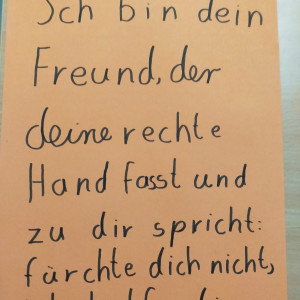 Ich bin dein
Freund, der
deine rechte
Hand fasst und
zu dir spricht:
fürchte dich nicht,